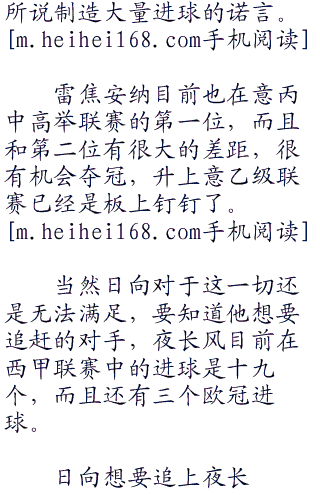 所说制造大量进球的诺言。
[m.heihei168.com手机阅读]
雷焦安纳目前也在意丙
中高举联赛的第一位，而且
和第二位有很大的差距，很
有机会夺冠，升上意乙级联
赛已经是板上钉钉了。
[m.heihei168.com手机阅读]
当然日向对于这一切还
是无法满足，要知道他想要
追赶的对手，夜长风目前在
西甲联赛中的进球是十九
个，而且还有三个欧冠进
球。
日向想要追上夜长